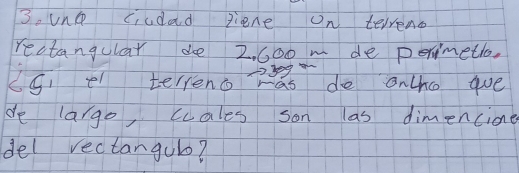 3. Una ciudad tiene un terreno
rectangular de 2.600 m de perimetro.
¿Si el terreno mas de ancho que
de largo, cuales son las dimencione
del rectangulo?